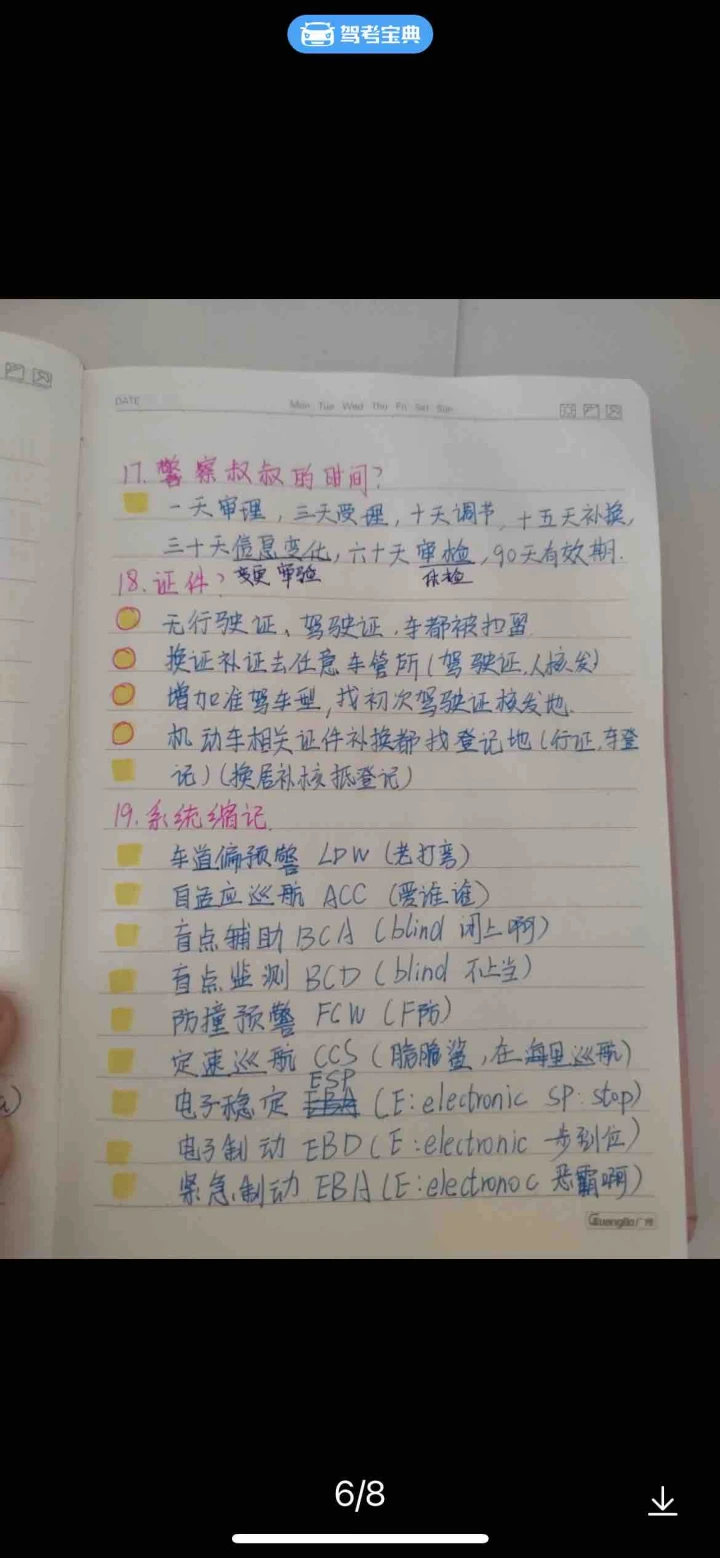 驾考宝典
DATE
Mon Tue Wed Thu Fri Sat Sun
17. 警察叔叔的时间?
一天审理，三天受理，十天调节，十五天补换，
三十天信息变化，六十天审检，90天有效期.
变更 审验 体检
18.证件?
无行驶证、驾驶证，车都被扣留
换证补证去任意车管所(驾驶证，人核发)
增加准驾车型，找初次驾驶证核发地.
机动车相关证件补换都找登记地(行证，车登
记)(换居补核抵登记)
19.系统缩记.
车道偏预警 LDW (老打弯)
自适应巡航 ACC (爱谁谁)
盲点辅助 BCA (blind 闭上啊)
盲点监测 BCD (blind 不上当)
防撞预警 FCW (F防)
定速巡航 CCS (脆脆鲨，在海里巡航)
ESP
电子稳定 EBA (E:electronic SP:stop)
电子制动 EBD (E:electronic 一步到位)
紧急制动 EBA (E:electronoc 恶霸啊)
Guangbo广博
6/8